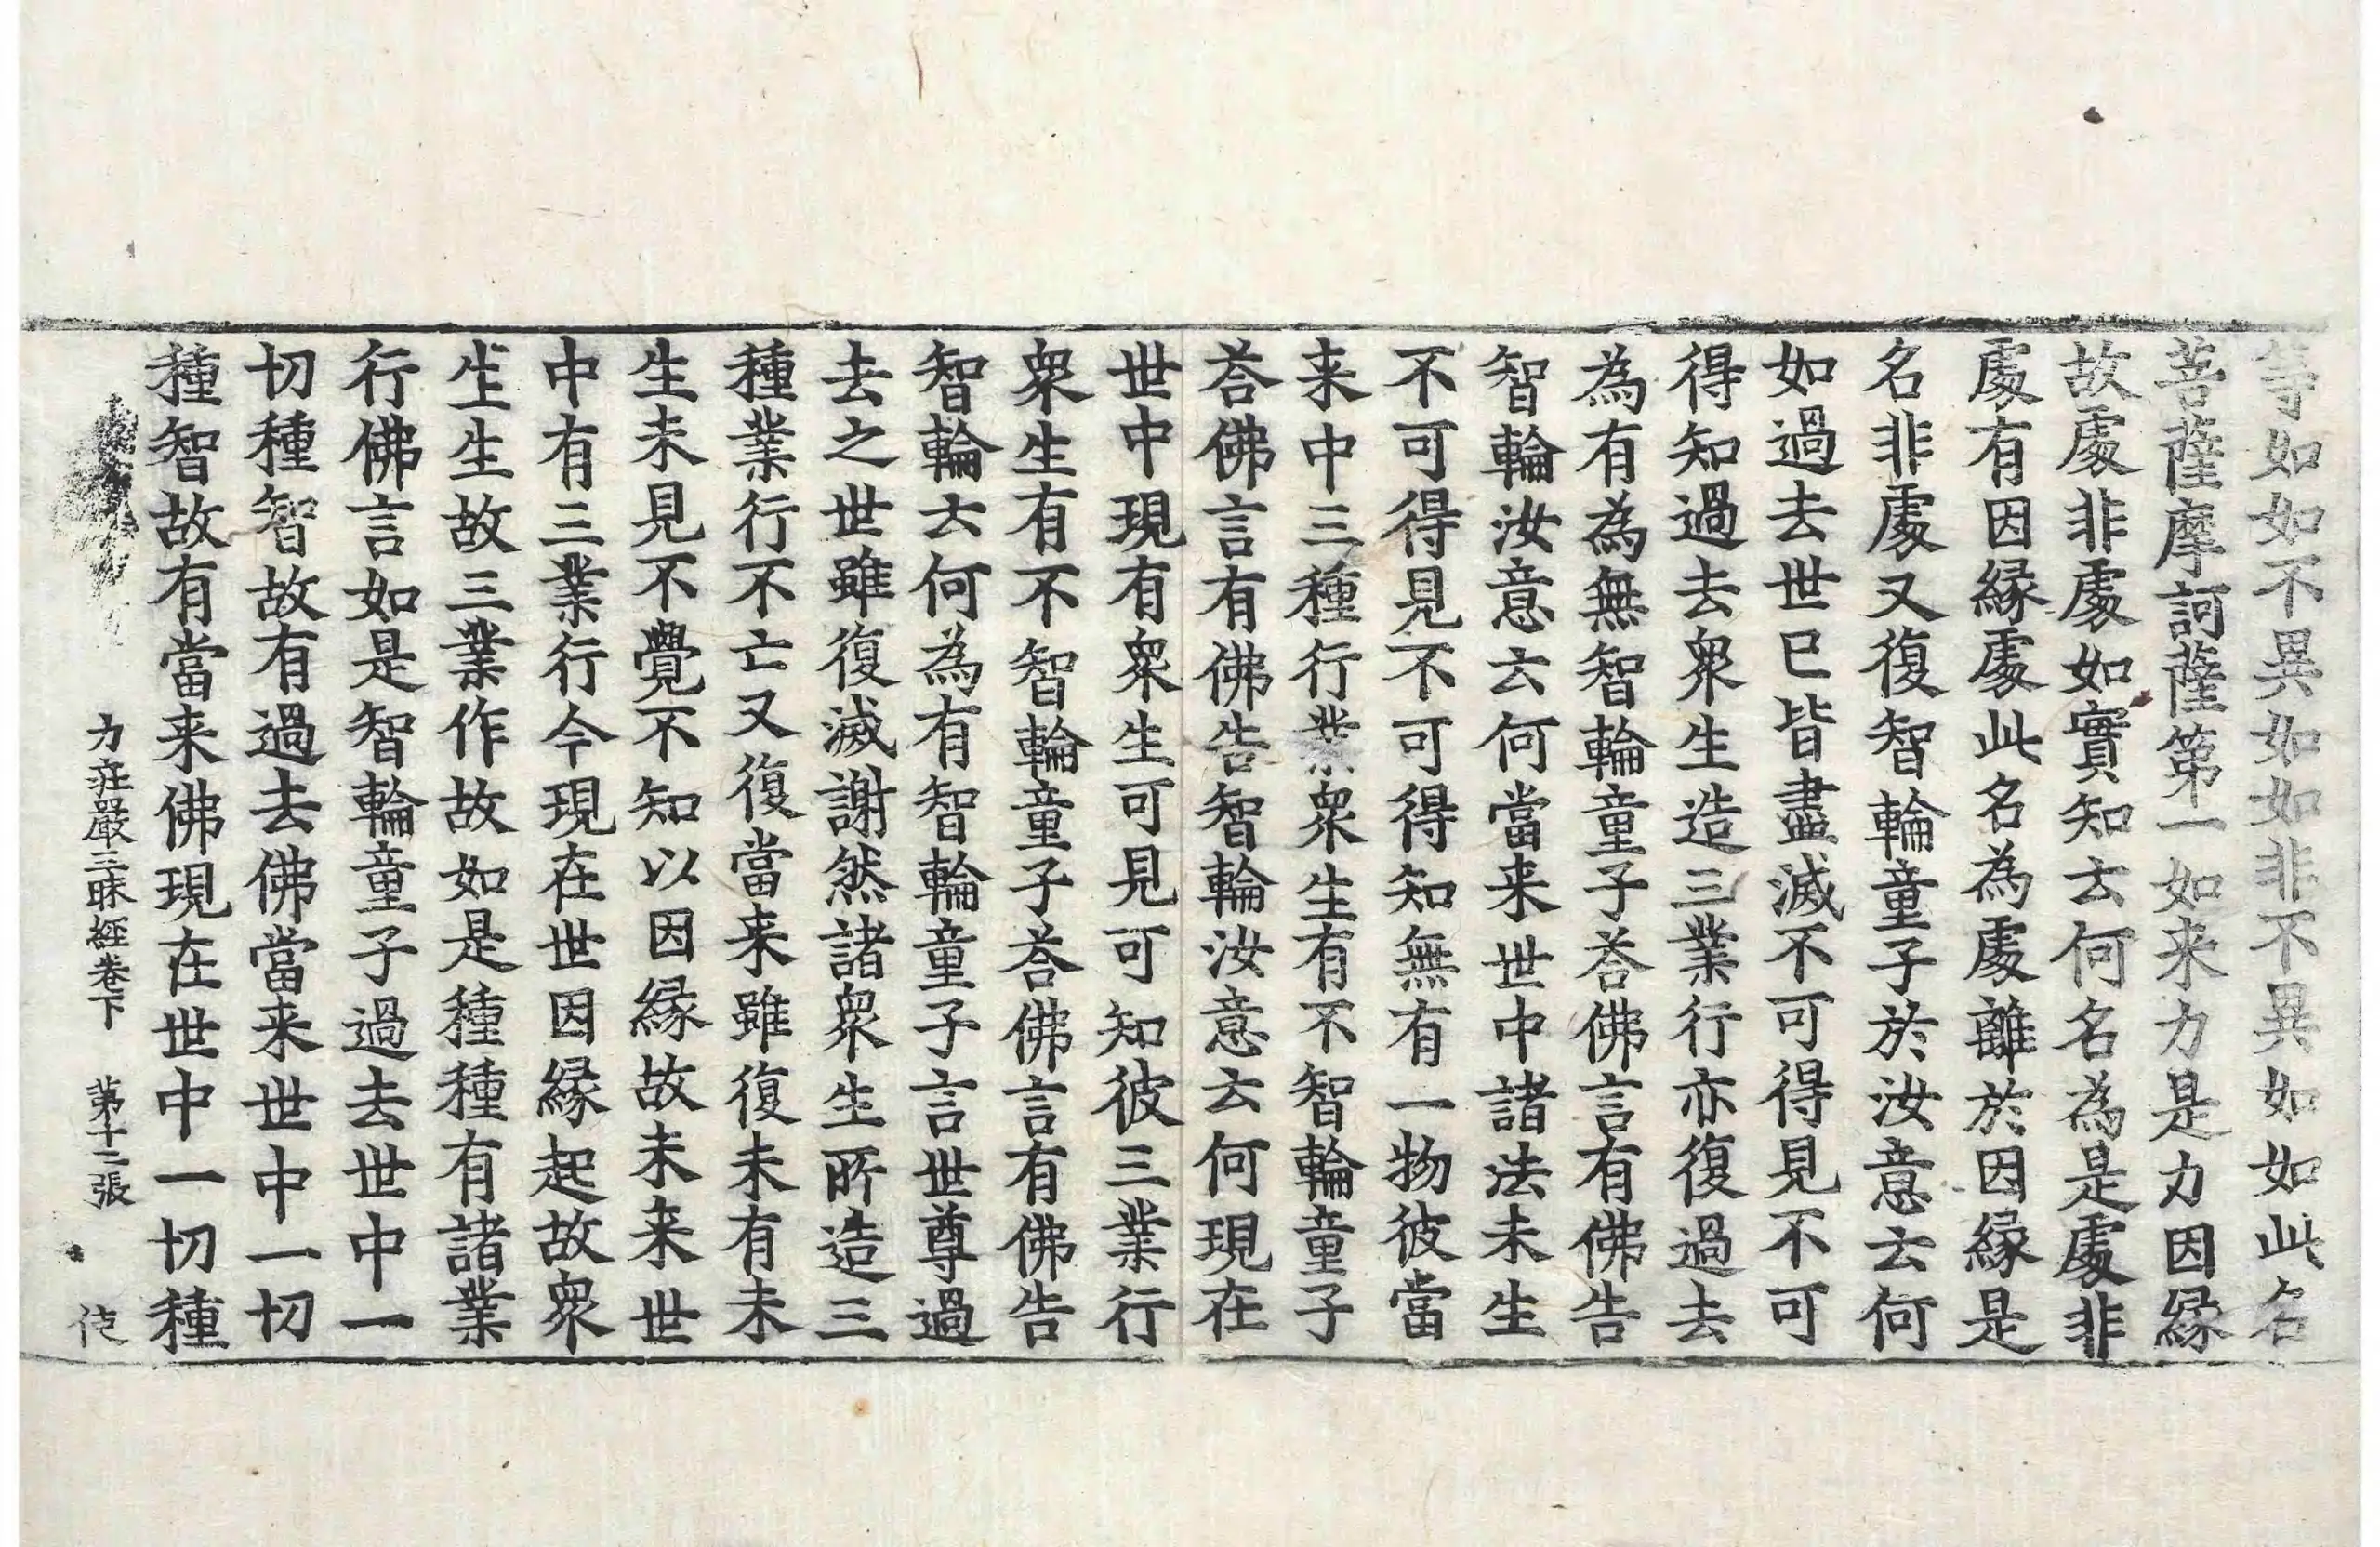 等如如不異如如非不異如如此名
菩薩摩訶薩第一如来力是力因縁
故處非處如實知云何名為是處非
處有因縁處此名為處離於因縁是
名非處又復智輪童子於汝意云何
如過去世巳皆盡滅不可得見不可
得知過去衆生造三業行亦復過去
為有為無智輪童子荅佛言有佛告
智輪汝意云何當来世中諸法未生
不可得見不可得知無有一物彼當
来中三種行業衆生有不智輪童子
荅佛言有佛告智輪汝意云何現在
世中現有衆生可見可知彼三業行
衆生有不智輪童子荅佛言有佛告
智輪云何為有智輪童子言世尊過
去之世雖復滅謝然諸衆生所造三
種業行不亡又復當来雖復未有未
生未見不覺不知以因縁故未来世
中有三業行今現在世因縁起故衆
生生故三業作故如是種種有諸業
行佛言如是智輪童子過去世中一
切種智故有過去佛當来世中一切
種智故有當来佛現在世中一切種
力莊嚴三昧經卷下　第十二張　使